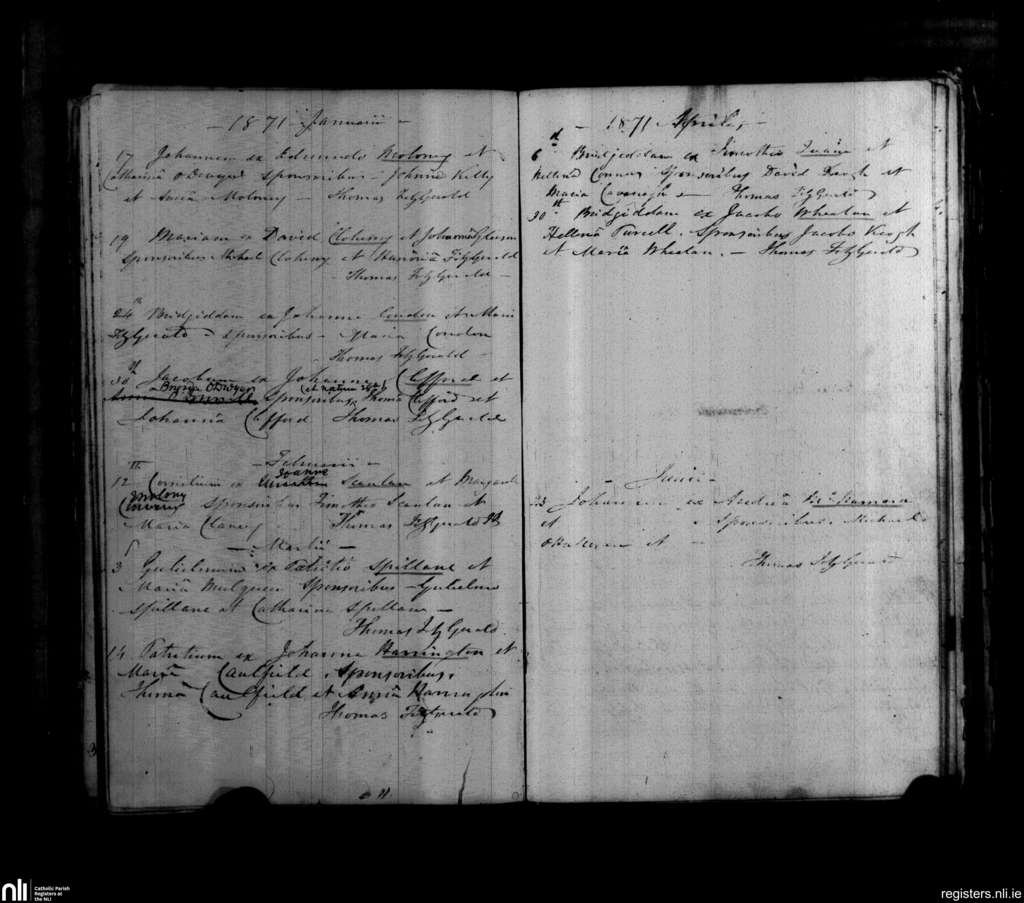 - 1871 - Januarii -
17 Johannem ex Edmundo Molony et
Catharinâ O Dwyer Sponsoribus - Johanne Kelly
et Maloney - Thomas FitzGerald
19 Mariam ex David Clohesy et Johanna
Sponsoribus Michaele Clohesy et Hanoriâ FitzGerald
- Thomas FitzGerald -
24th Bridgiddam ex Johanne Condon et Maria
FitzGerald - Sponsoribus - Maria Condon
- Thomas FitzGerald -
30th Jacobum ex Johanne Clifford et
O Dwyer Sponsoribus Thoma Clifford et
Johannâ Clifford Thomas FitzGerald
- Februarii -
12th Cornelium ex Joanne Scanlan et Margarita
Molony Sponsoribus Timotheo Scanlan et
Maria Clancy - Thomas FitzGerald
- Martii -
3 Gulielmum ex Patritio Spillane et
Mariâ Mulqueen Sponsoribus - Gulielmo
Spillane et Catharina Spillane -
Thomas FitzGerald
14 Patritium ex Johanne Harrington et
Mariâ Caulfield, Sponsoribus,
Thomâ Caulfield et Harrington
Thomas FitzGerald
- 1871 Aprilis, -
6th Bridgiddam ex Timotheo et
Hellena Connor Sponsoribus David Keogh et
Maria Cavanagh - Thomas FitzGerald
30th Bridgiddam ex Jacobo Whealan et
Hellenâ Purcell. Sponsoribus Jacobo Keogh
et Mariâ Whealan. - Thomas FitzGerald
- Junii -
23 Johannem ex Andreâ McNamara
et - Sponsoribus. Michaele
et -
Thomas FitzGerald
nli
Catholic Parish
Registers at
the NLI
registers.nli.ie